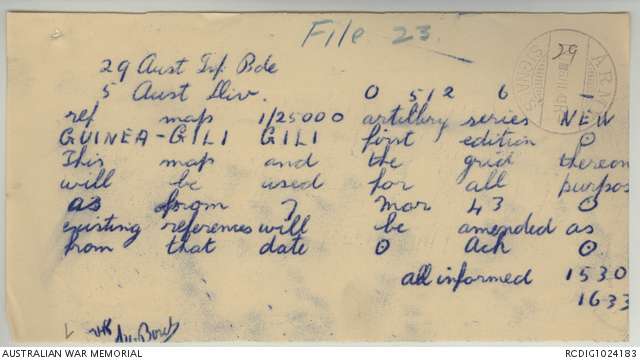 File 23.
29 Aust Inf Bde
5 Aust Div. O 512 6 1
ref map 1/25000 artillery series NEW
GUINEA-GILI GILI first edition O
This map and the grid thereon
will be used for all purpos
as from 7 Mar 43 O
existing references will be amended as
from that date O Ack O
all informed 1530
1633
ARMY
SIGNALS
29
AUSTRALIAN WAR MEMORIAL
RCDIG1024183